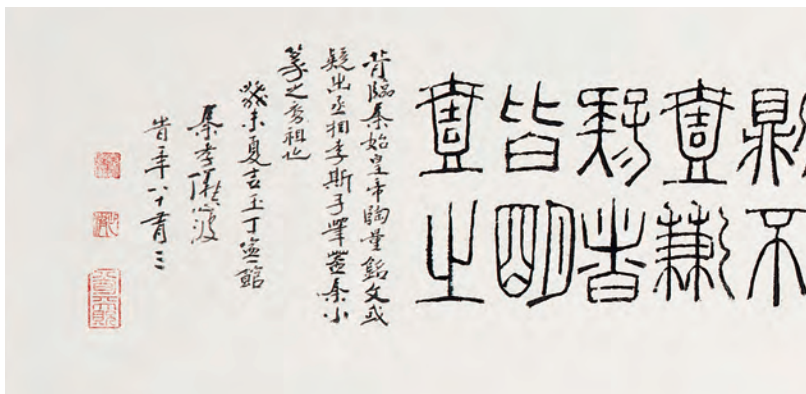 則不
壹歉
疑者
皆明
壹之
背臨秦始皇帝陶量銘文或
疑出丞相李斯手筆蓋秦小
篆之祖也
癸未夏吉玉丁寍館
秦孝儀心波
旹年八十有三